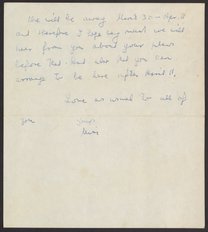 We will be away March 30 - Apr. 8
and therefore I hope very much we will
hear from you about your plans
before that. And that you can
arrange to be here after April 11.
Love as usual to all of
you